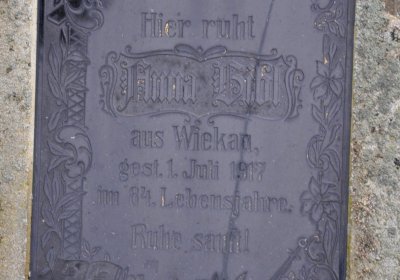 Hier ruht
Anna Hißl
aus Wiekau,
gest. 1. Juli 1917
im 84. Lebensjahre.
Ruhe sanft!